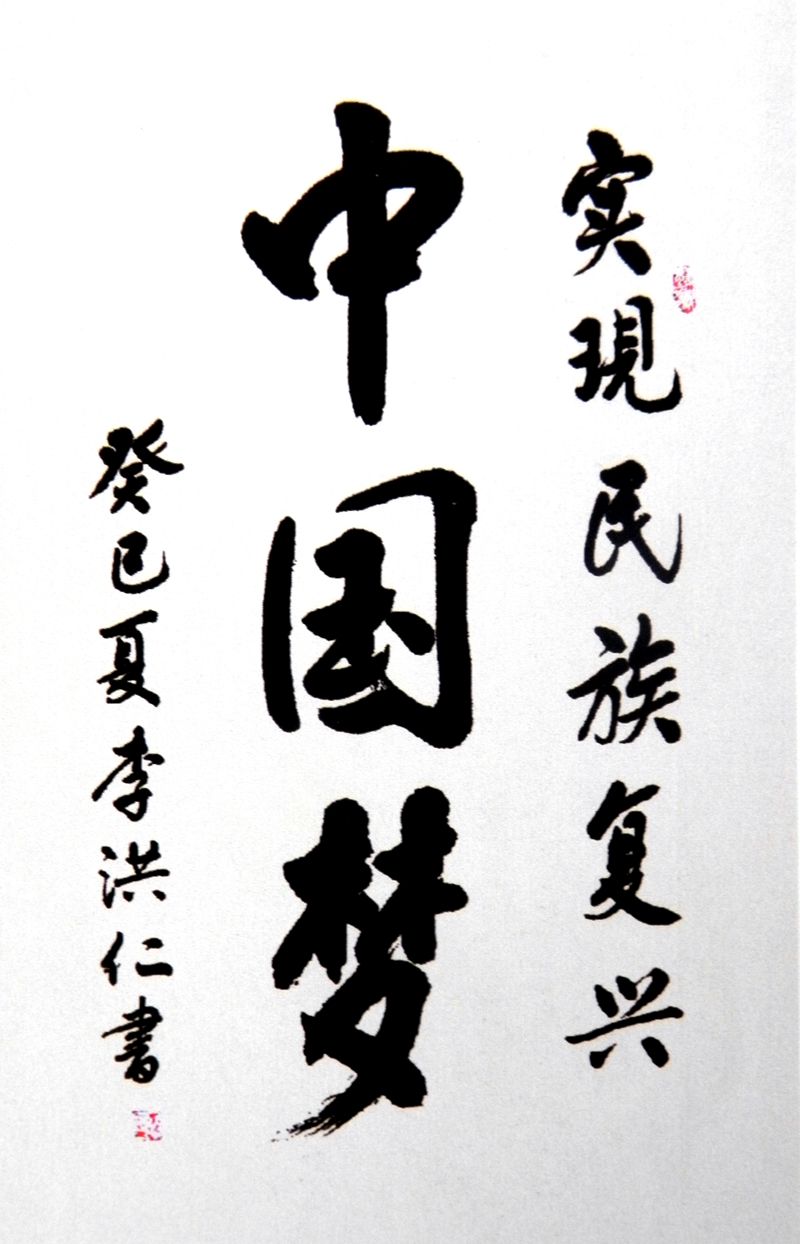 实現民族复兴
中国梦
癸巳夏李洪仁書